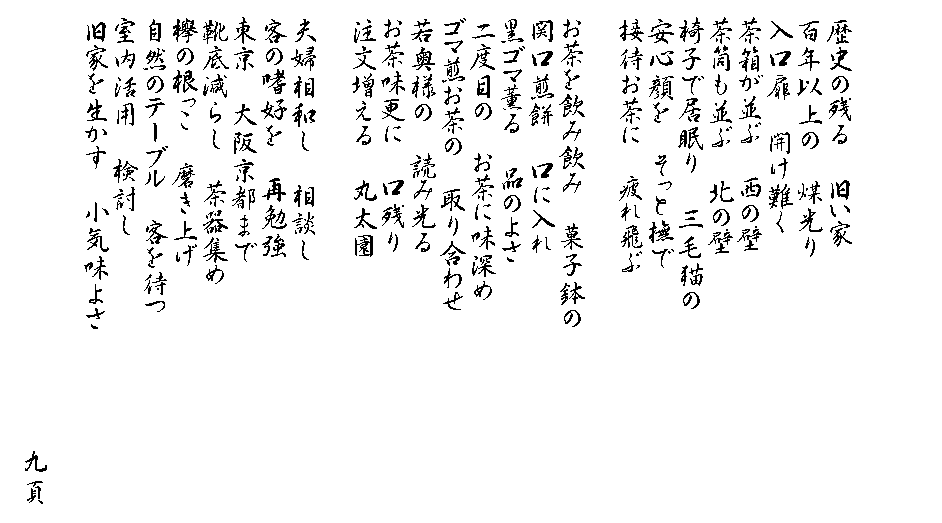 歴史の残る　旧い家
百年以上の　煤光り
入口扉　開け難く
茶箱が並ぶ　西の壁
茶筒も並ぶ　北の壁
椅子で居眠り　三毛猫の
安心顔を　そっと撫で
接待お茶に　疲れ飛ぶ
お茶を飲み飲み　菓子鉢の
関口煎餅　口に入れ
黒ゴマ薫る　品のよさ
二度目の　お茶に味深め
ゴマ煎お茶の　取り合わせ
若奥様の　読み光る
お茶味更に　口残り
注文増える　丸太園
夫婦相和し　相談し
客の嗜好を　再勉強
東京　大阪京都まで
靴底減らし　茶器集め
欅の根っこ　磨き上げ
自然のテーブル　客を待つ
室内活用　検討し
旧家を生かす　小気味よさ
九頁